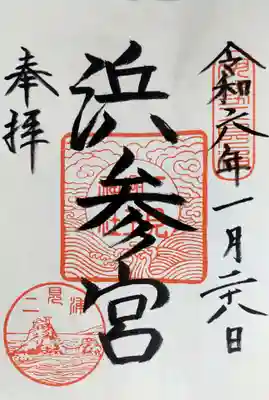 令和六年一月二十八日
浜参宮
奉拝
二見浦